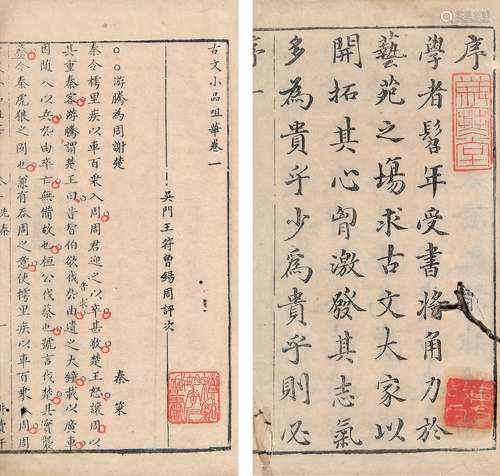 序
學者髫年受書將角力於
藝苑之場求古文大家以
開拓其心胷激發其志氣
多為貴乎少爲貴乎則必
序
一
古文小品咀華卷一
吳門王符曾錫周評次
秦策
○○游騰為周謝楚
秦令樗里疾以車百乘入周周君迎之以卒甚敬楚王怒讓周以
其重秦客游騰謂楚王曰昔智伯欲伐厹由遺之大鐘載以廣車
因隨入以兵厹由卒亡無備故也桓公伐蔡也號言伐楚其實襲
蔡今秦虎狼之國也兼有吞周之意使樗里疾以車百乘入周周